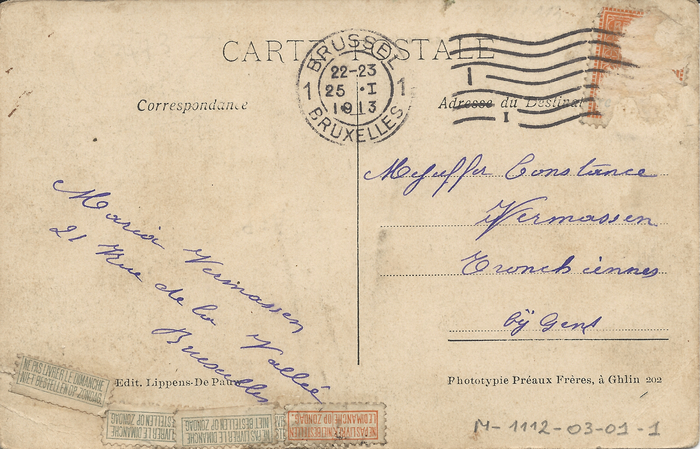 CARTE POSTALE
BRUSSEL
22-23
1 25 ·I 1
1913
BRUXELLES
1
I
Correspondance
Adresse du Destinat
Mejuffr Constance
Vermassen
Tronchiennes
bÿ Gent
Maria Vermassen
21 Rue de la Vallée
Bruxelles
NE PAS LIVRER LE DIMANCHE
NIET BESTELLEN OP ZONDAG
Edit. Lippens-De Pauw
Phototypie Préaux Frères, à Ghlin 202
LIVRER LE DIMANCHE
STELLEN OP ZONDAG
NE PAS LIVRER LE DIMANCHE
NIET BESTELLEN OP ZONDAG
NE PAS LIVRER
LE DIMANCHE
NIET BESTELLEN
OP ZONDAG
M-1112-03-01-1